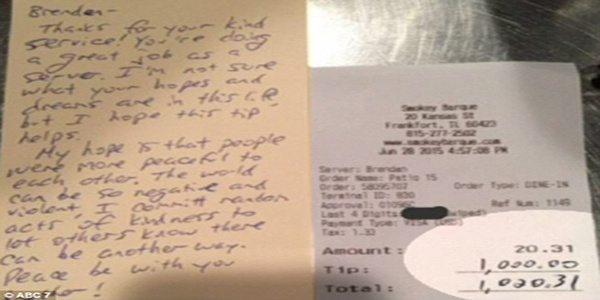 Brendan-
Thanks for your kind
service! You're doing
a great job as a
server. I'm not sure
what your hopes and
dreams are in this life
but I hope this tip
helps.
My hope is that people
were more peaceful to
each other. The world
can be so negative and
violent, I commit random
acts of kindness to
let others know there
can be another way.
Peace be with you
© ABC 7
Smokey Barque
20 Kansas St
Frankfort, IL 60423
815-277-2502
www.smokeybarque.com
Jun 28 2015 4:57:08 PM
Server: Brendan
Order Name: Patio 15
Order: 58095707 Order Type: DINE-IN
Terminal ID: 830
Approval: Ref Num: 1149
Last 4 Digits
Payment Type: VISA
Tax: 1.30
Amount: 20.31
Tip: 1,000.00
Total: 1,020.31